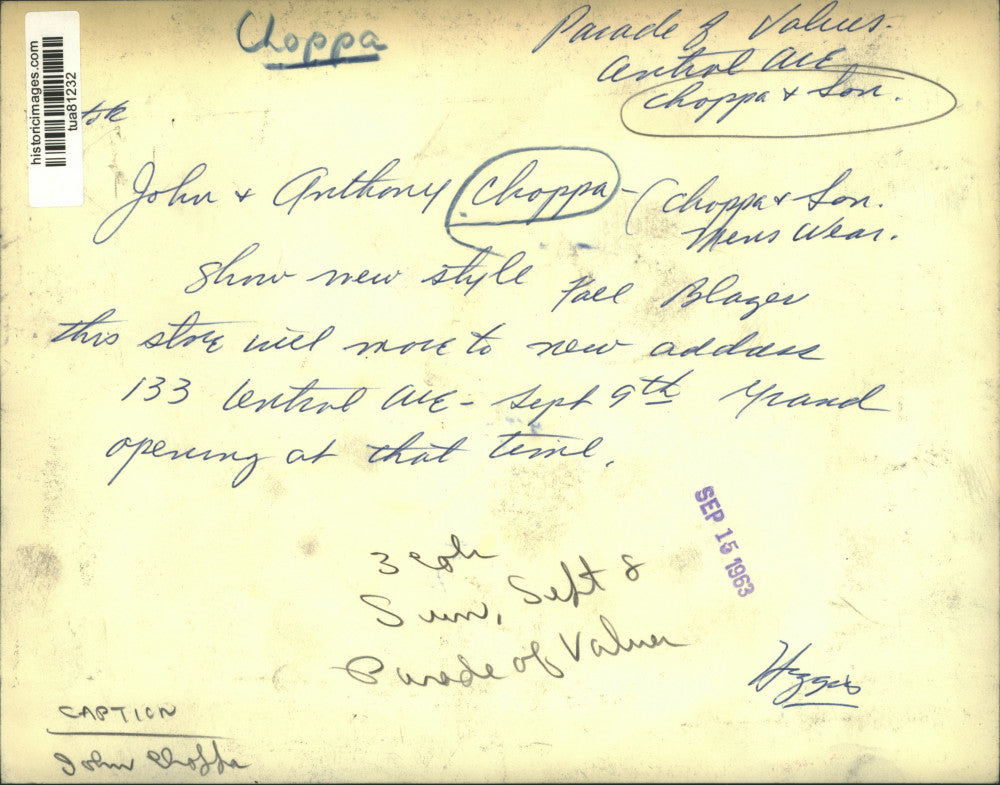 historicimages.com
tua81232
Choppa
Parade of Values.
Central Ave
Choppa & Son.
John & Anthony Choppa - (Choppa & Son.
Mens Wear.
Show new style Fall Blazer
this store will move to new address
133 Central Ave - Sept 9th Grand
opening at that time.
SEP 15 1963
3 col
Sun, Sept 8
Parade of Values
Higgins
CAPTION
John Choppa